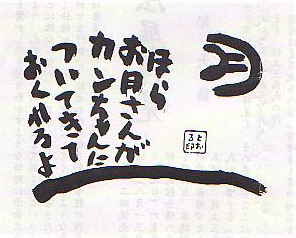 月
ほら
お月さんが
カンちゃんに
ついてきて
おくれろよ